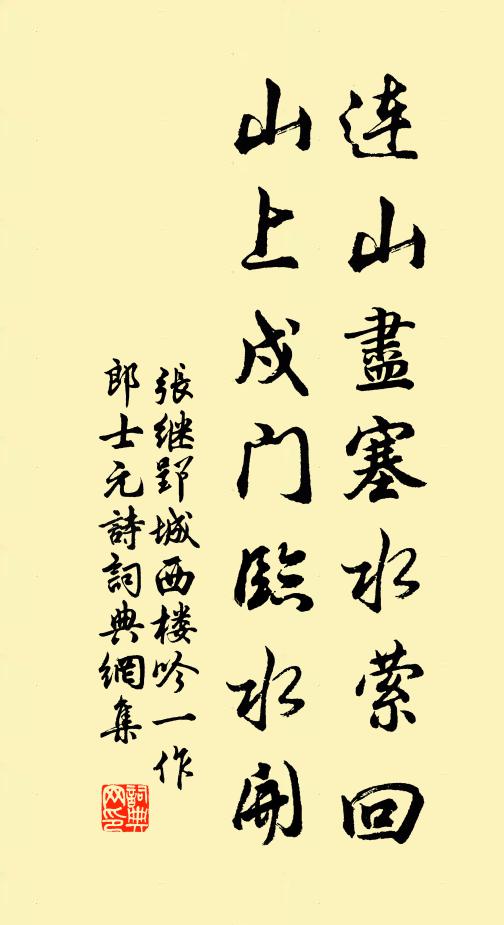 连山盡塞水萦回
山上戍门臨水開
張继郢城西楼吟一作
郎士元詩詞典網集
詞典网印